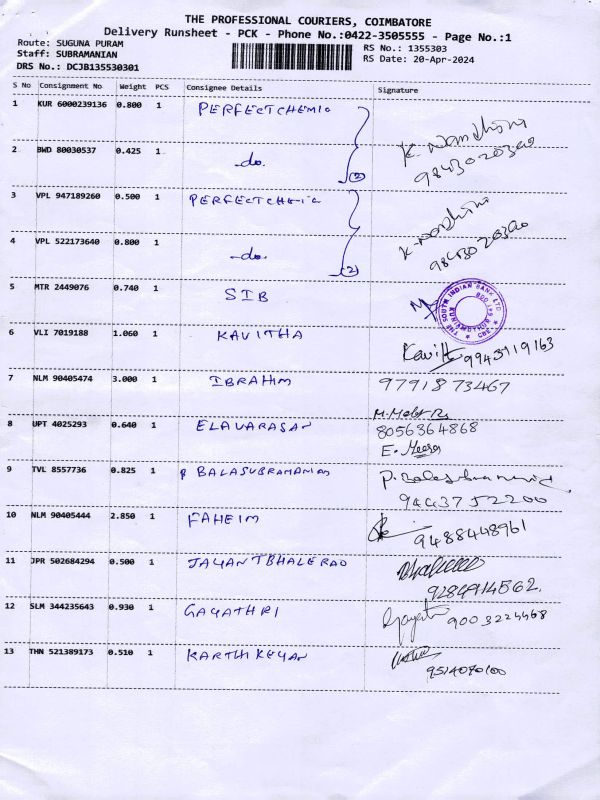 THE PROFESSIONAL COURIERS, COIMBATORE
Delivery Runsheet - PCK - Phone No.:0422-3505555 - Page No.:1
Route: SUGUNA PURAM
RS No.: 1355303
Staff: SUBRAMANIAN
RS Date: 20-Apr-2024
DRS No.: DCJB135530301
S No Consignment No Weight PCS Consignee Details Signature
1 KUR 6000239136 0.800 1 PERFECTCHEMIC K. Nandhini
9843020320
2 BWD 80030537 0.425 1 -do. (2)
3 VPL 947189260 0.500 1 PERFECTCHEMIC K. Nandhini
9843020320
4 VPL 522173640 0.800 1 -do. (2)
5 MTR 2449076 0.740 1 SIB THE SOUTH INDIAN BANK LTD
6 VLI 7019188 1.060 1 KAVITHA Kavitha 9943119163
7 NLM 90405474 3.000 1 IBRAHIM 9791873467
8 UPT 4025293 0.640 1 ELAVARASAN 8056364868
E. Meera
9 TVL 8557736 0.825 1 P BALASUBRAMANIAN P. Balasubramani
9443752200
10 NLM 90405444 2.850 1 FAHEIM 9488448961
11 JPR 502684294 0.500 1 JAYANTBHALERAO
9284914562.
12 SLM 344235643 0.930 1 GAYATHRI Gayatri 9003224468
13 THN 521389173 0.510 1 KARTHIKEYAN
9514070100